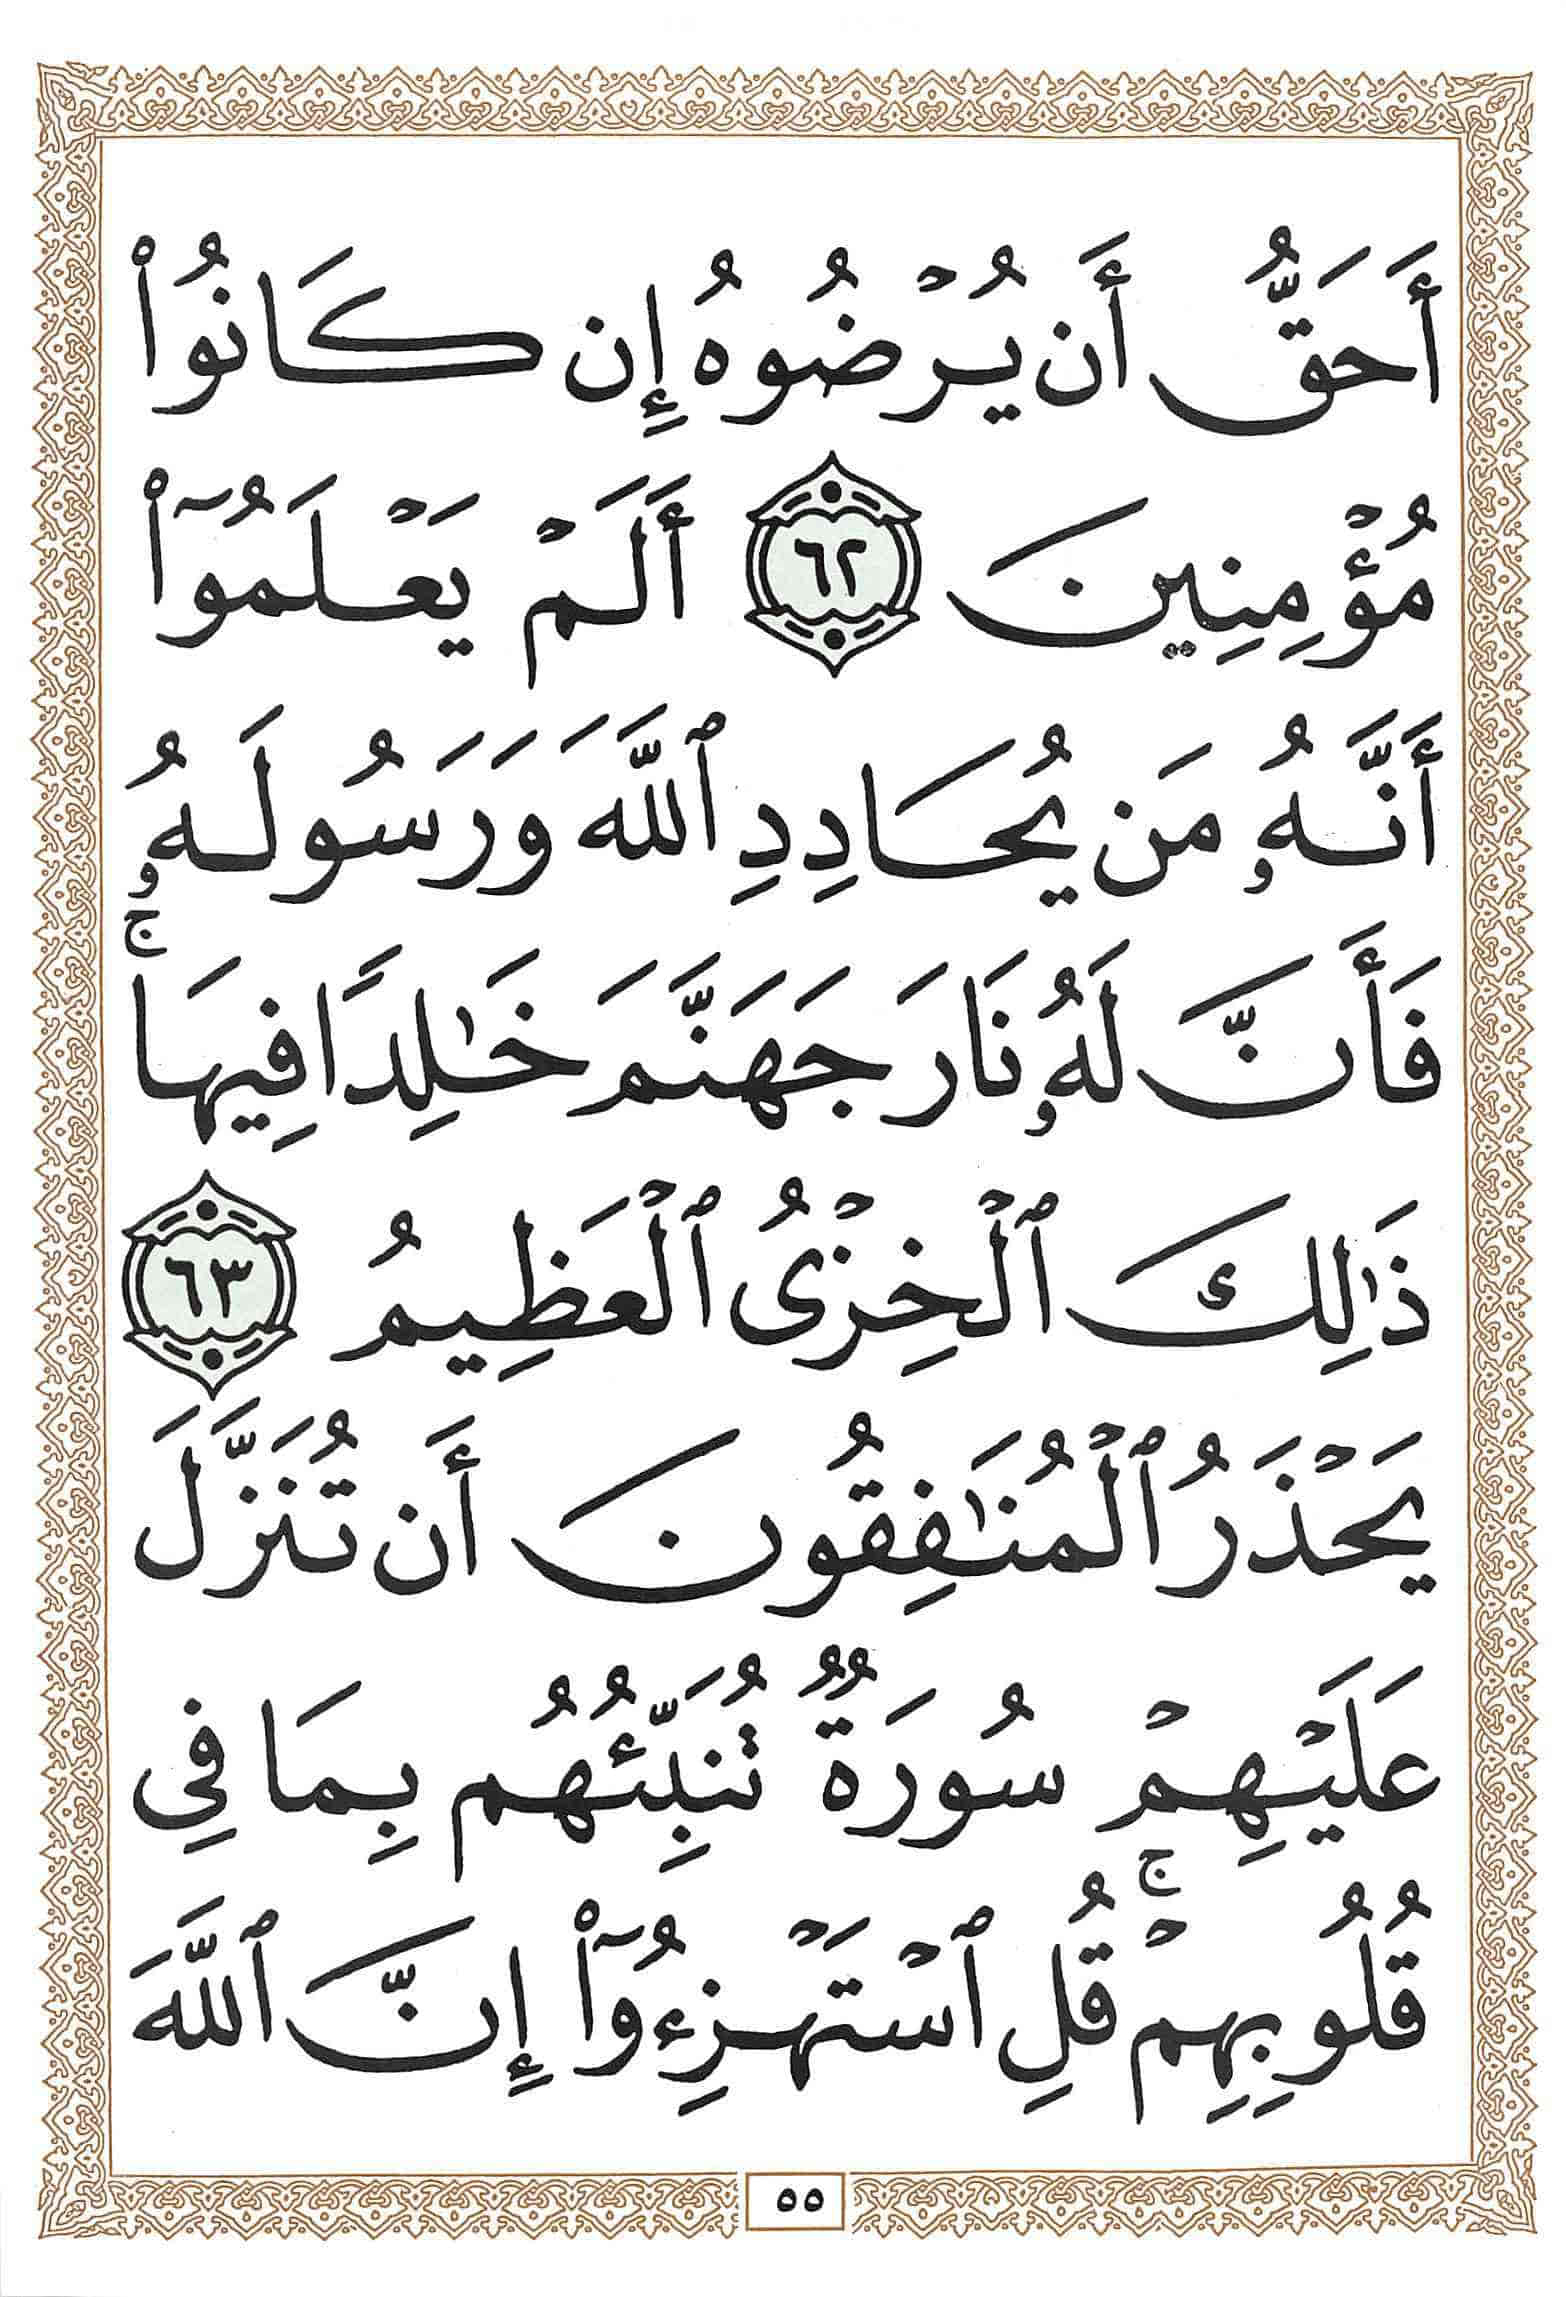 أَحَقُّ أَن يُرْضُوهُ إِن كَانُوا۟
مُؤْمِنِينَ ٦٢ أَلَمْ يَعْلَمُوٓا۟
أَنَّهُۥ مَن يُحَادِدِ ٱللَّهَ وَرَسُولَهُۥ
فَأَنَّ لَهُۥ نَارَ جَهَنَّمَ خَٰلِدًا فِيهَاۚ
ذَٰلِكَ ٱلْخِزْىُ ٱلْعَظِيمُ ٦٣
يَحْذَرُ ٱلْمُنَٰفِقُونَ أَن تُنَزَّلَ
عَلَيْهِمْ سُورَةٌ تُنَبِّئُهُم بِمَا فِى
قُلُوبِهِمْۚ قُلِ ٱسْتَهْزِءُوٓا۟ إِنَّ ٱللَّهَ
٥٥